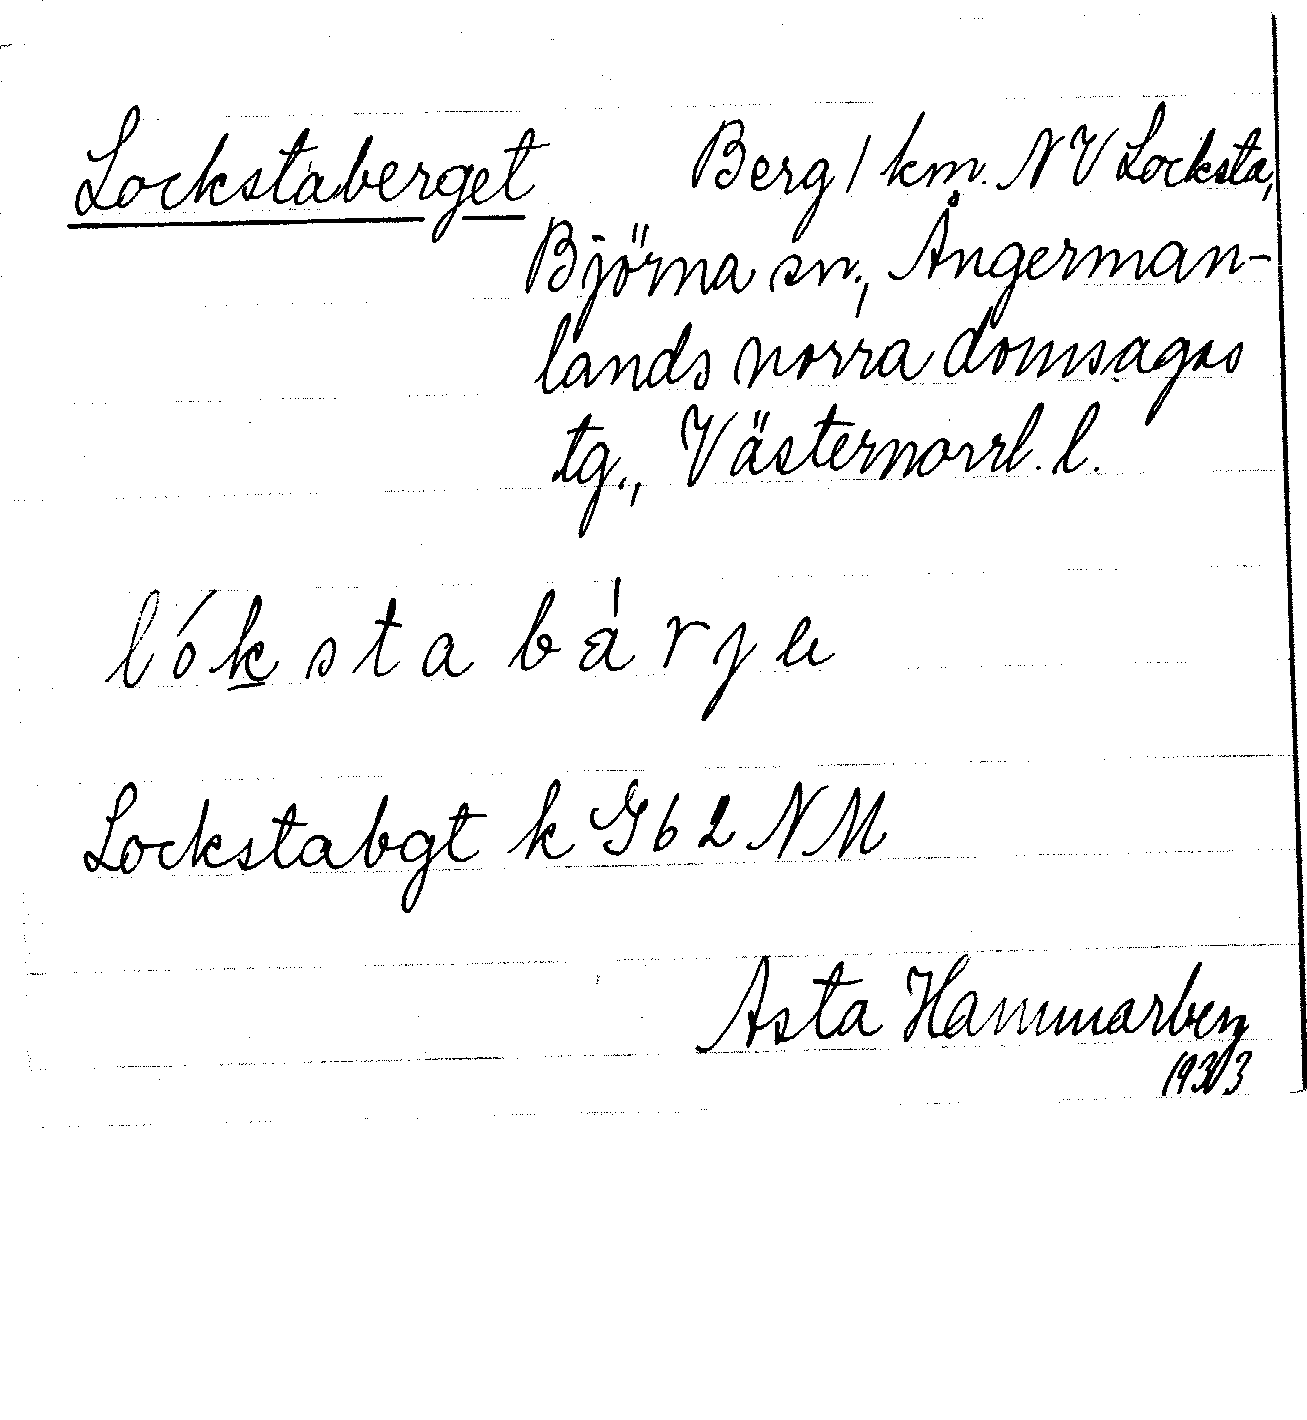 Lockstaberget Berg 1 km. NV Locksta,
Björna sn., Ångerman-
lands norra domsagas
tg., Västernorrl. l.
lóksta
Lockstabgt k G62 NM
Asta Hammarberg